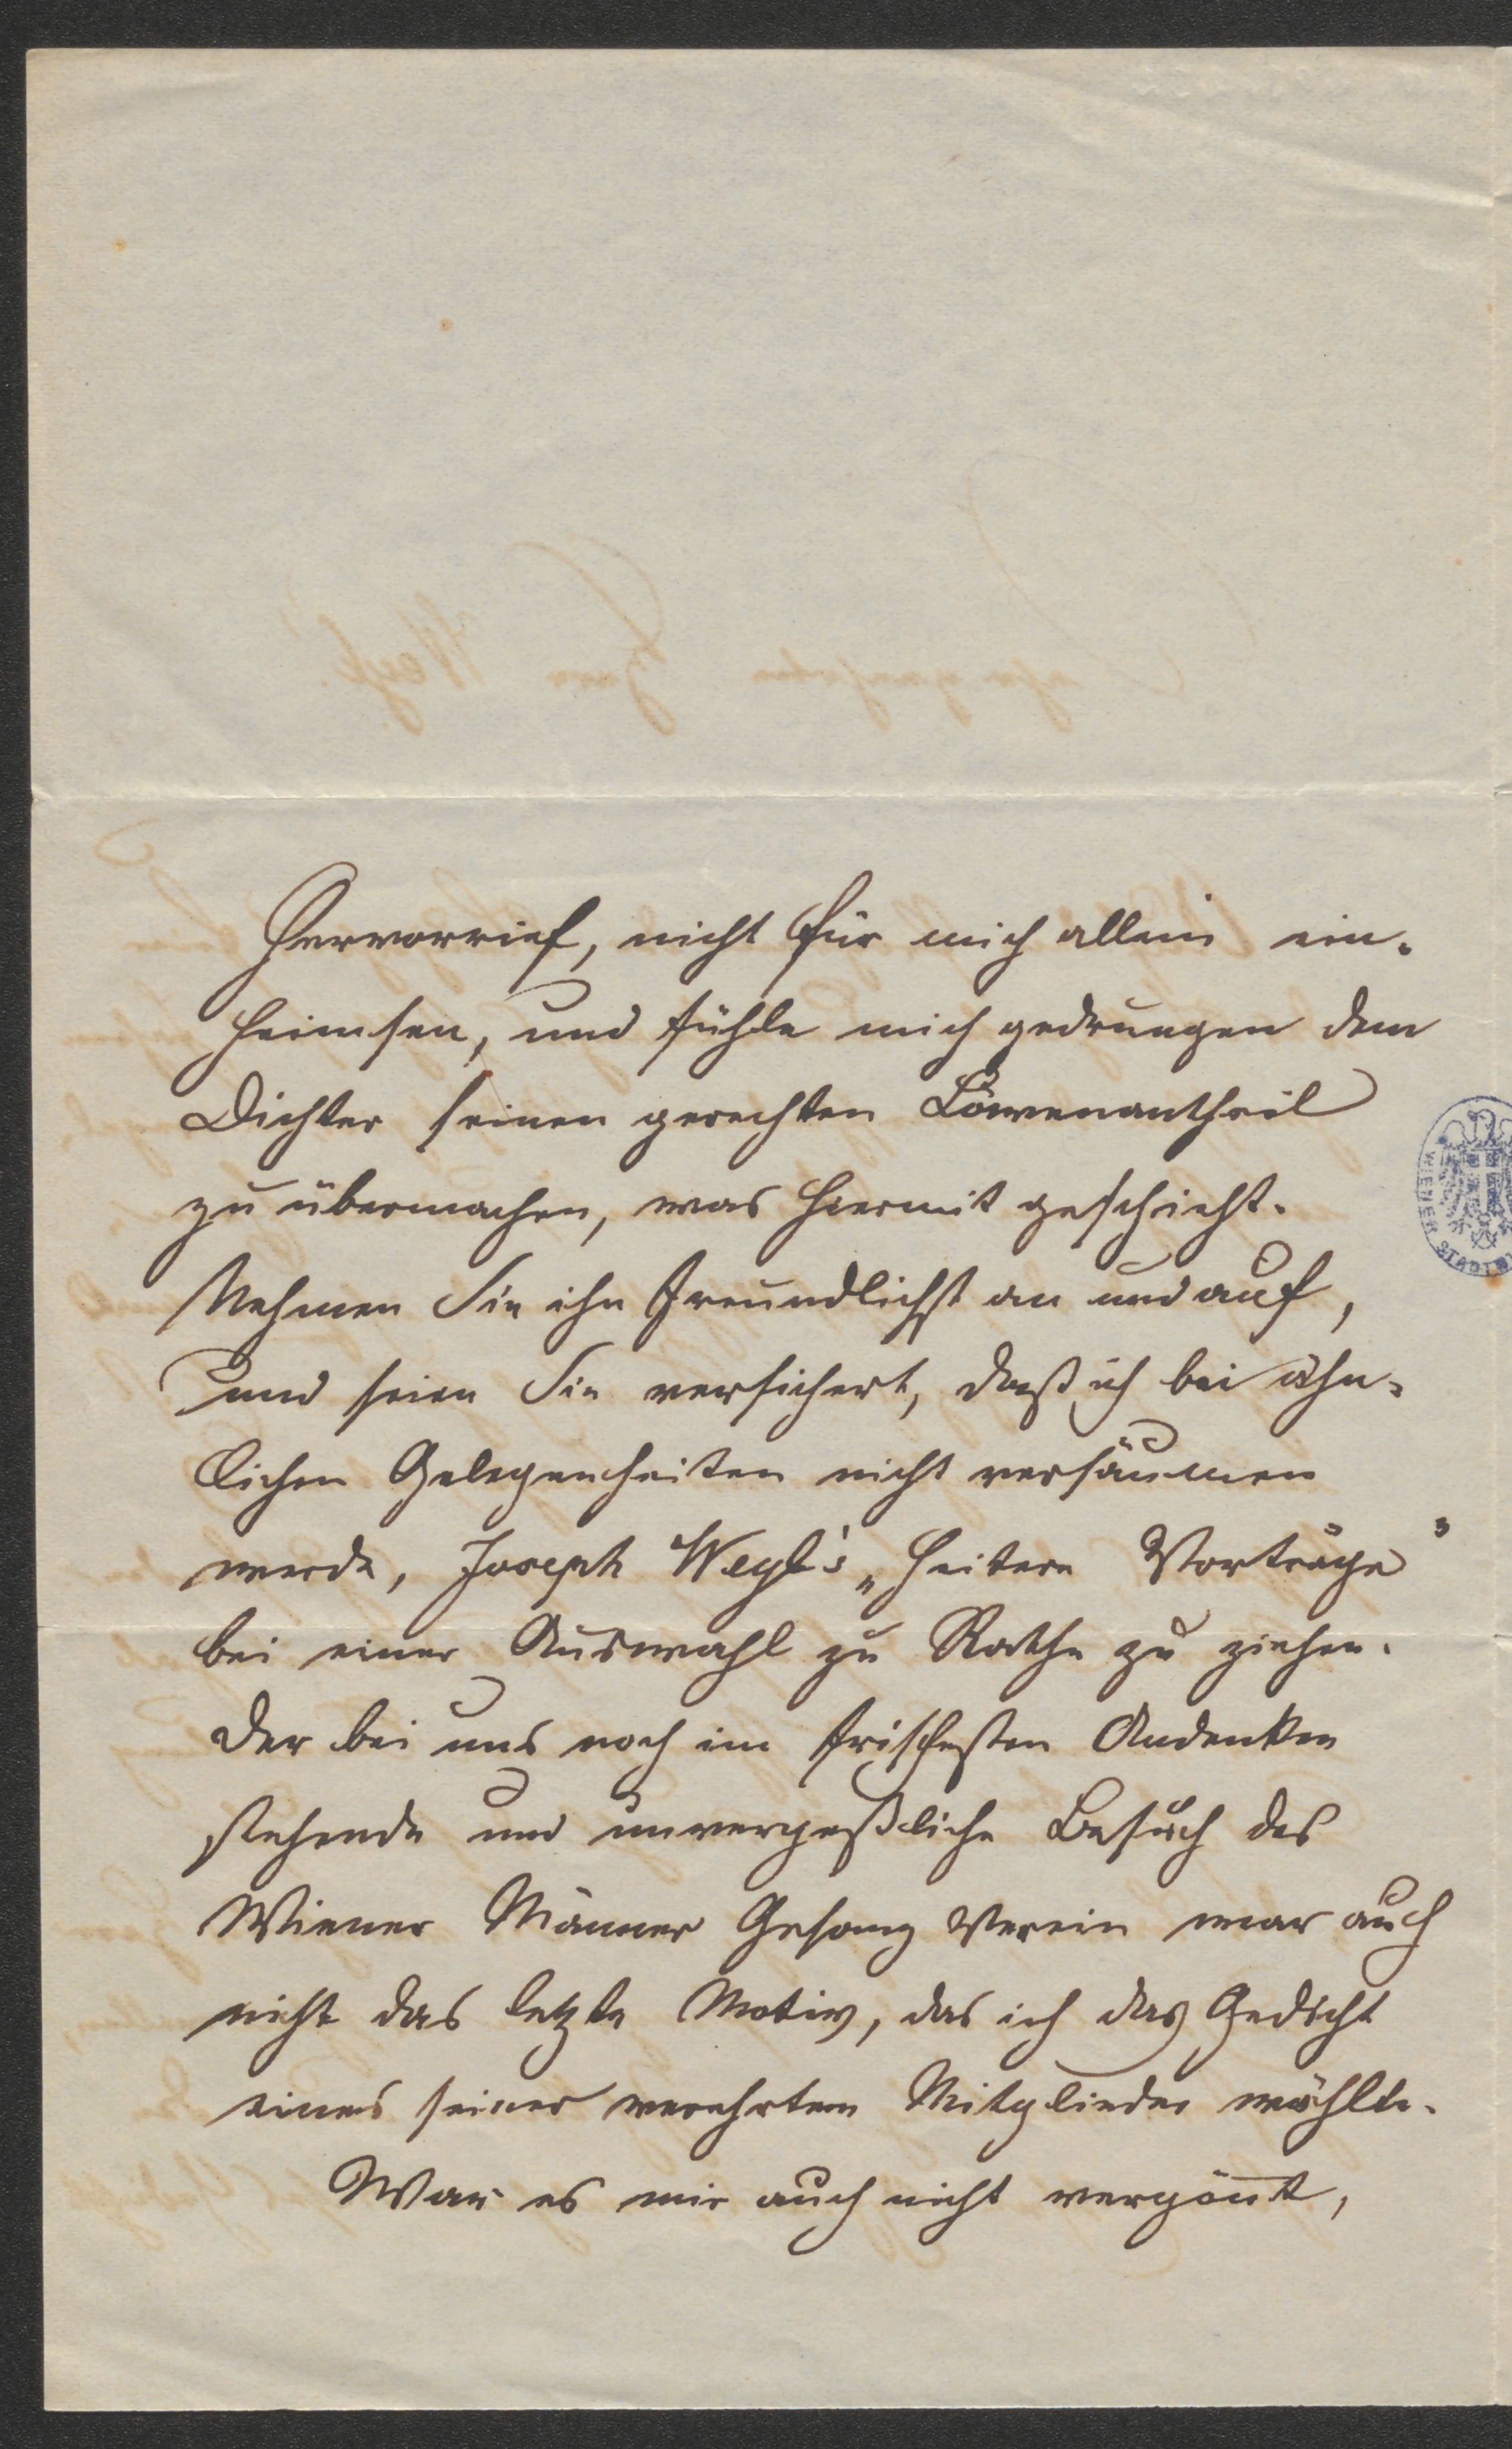 hervorrief, nicht für mich allein ein-
heimsen, und fühle mich gedrungen dem
Dichter seinen gerechten Löwenantheil
zu übermachen, was hiermit geschieht.
Nehmen Sie ihn freundlichst an und auf,
und seien Sie versichert, daß ich bei ähn-
lichen Gelegenheiten nicht versäumen
werde, Joseph Weyl's „heitere Vorträge"
bei einer Auswahl zu Rathe zu ziehen.
Der bei uns noch im frischesten Andenken
stehende und unvergeßliche Besuch des
Wiener Männer Gesang Verein war auch
nicht das letzte Motiv, das ich das Gedicht
eines seiner verehrten Mitglieder wählte.
War es mir auch nicht vergönt,
WIENER STADT